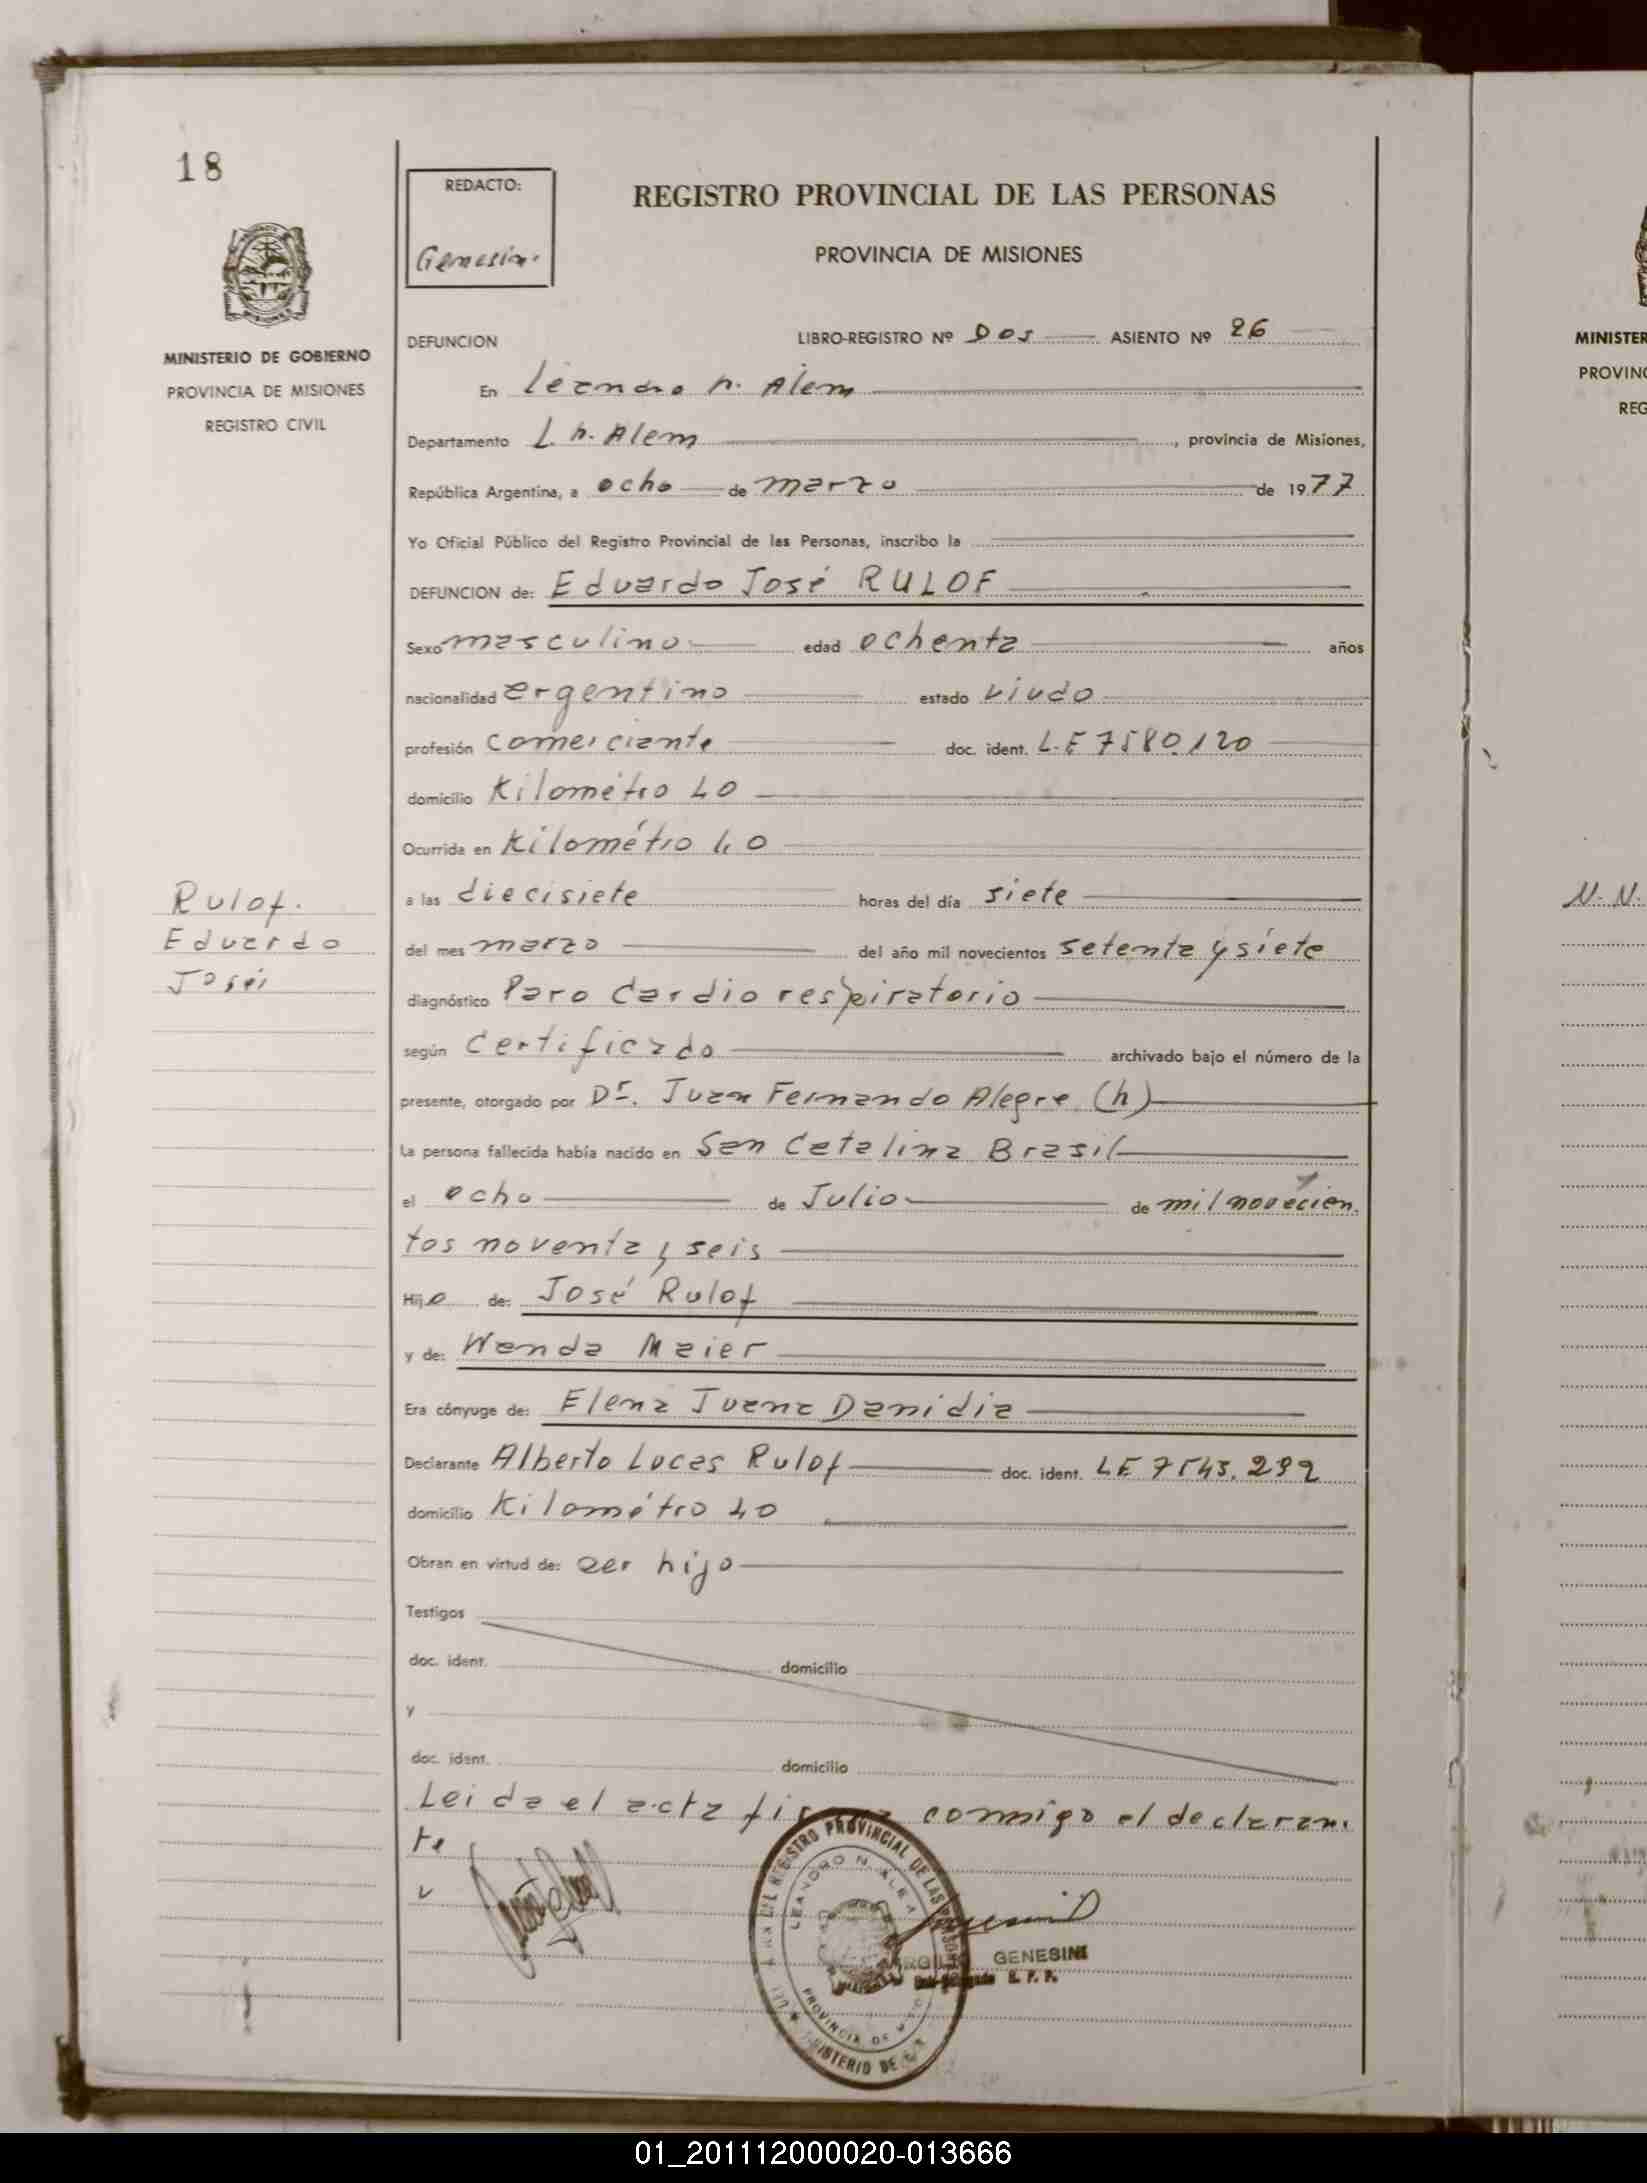 18
REDACTO:
Genesini
REGISTRO PROVINCIAL DE LAS PERSONAS
PROVINCIA DE MISIONES
MINISTERIO DE GOBIERNO
PROVINCIA DE MISIONES
REGISTRO CIVIL
DEFUNCION LIBRO-REGISTRO Nº Dos ASIENTO Nº 26
En Leandro N. Alem
Departamento L. N. Alem, provincia de Misiones,
República Argentina, a ocho de marzo de 1977
Yo Oficial Público del Registro Provincial de las Personas, inscribo la
DEFUNCION de: Eduardo José RULOF
Sexo masculino edad ochenta años
nacionalidad argentino estado viudo
profesión comerciante doc. ident. L.E 7580.120
domicilio Kilométro 40
Ocurrida en Kilométro 40
Rulof.
Eduardo
José
a las diecisiete horas del día siete
del mes marzo del año mil novecientos setenta y siete
diagnóstico Paro Cardio respiratorio
según Certificado archivado bajo el número de la
presente, otorgado por Dr. Juan Fernando Alegre (h)
La persona fallecida había nacido en San Catalina Brasil
el ocho de Julio de mil novecien.
tos noventa y seis
Hijo de: José Rulof
y de: Wanda Maier
Era cónyuge de: Elena Juana Danidia
Declarante Alberto Lucas Rulof doc. ident. LE 7543.292
domicilio Kilométro 40
Obran en virtud de: ser hijo
Testigos
doc. ident. domicilio
y
doc. ident. domicilio
Leida el acta firma conmigo el declaran.
te
REGISTRO PROVINCIAL DE LAS PERSONAS
LEANDRO N. ALEM
PROVINCIA DE
MINISTERIO DE
GENESINI
R. P. P.
MINISTER
PROVINC
REG
N. N.
01_201112000020-013666